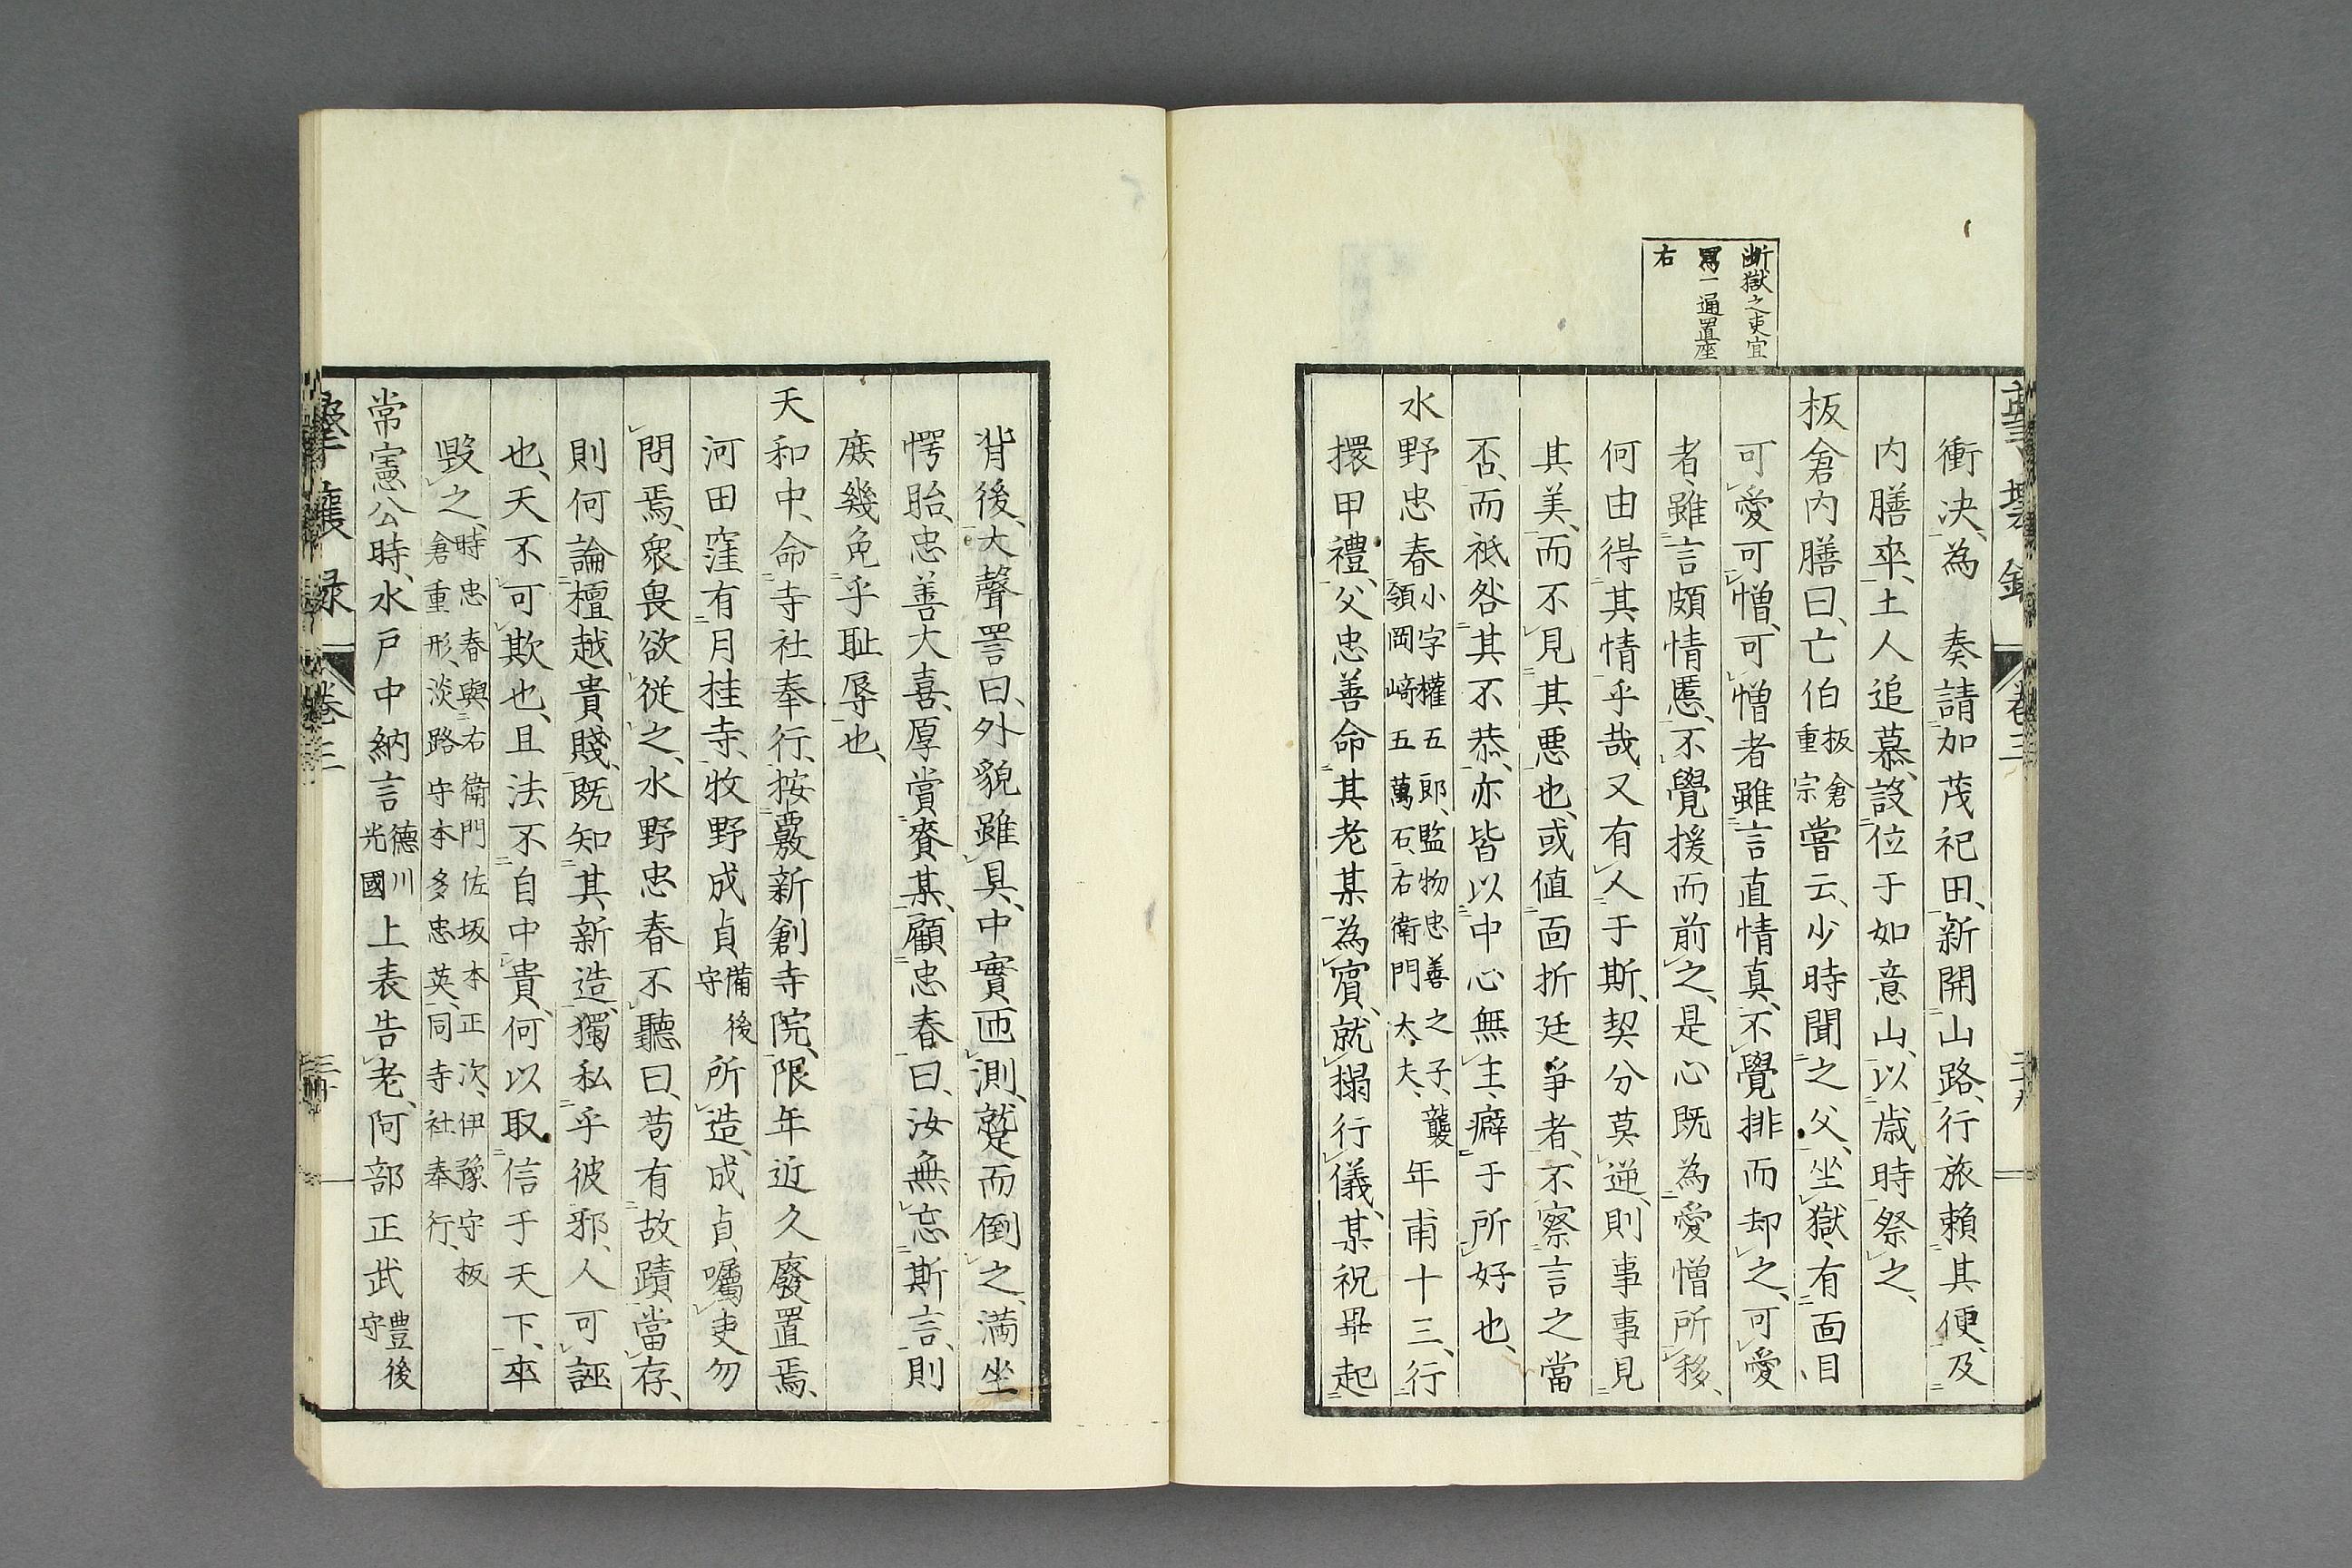 断獄之吏宜
寫一通置座
右
衝決、為　奏請加茂祀田、新開山路、行旅賴其便、及
内膳卒、土人追慕、設位于如意山、以歳時祭之、
板倉内膳曰、亡伯板倉重宗嘗云、少時聞之父、坐獄、有面目
可愛可憎、可憎者雖言直情真、不覺排而却之、可愛
者、雖言頗情慝、不覺援而前之、是心既為愛憎所移、
何由得其情乎哉、又有人于斯、契分莫逆、則事事見
其美、而不見其悪也、或値面折廷爭者、不察言之當
否、而祗咎其不恭、亦皆以中心無主、癖于所好也、
水野忠春小字權五郎、監物忠善之子、襲領岡﨑五萬石、右衛門大夫、年甫十三、行
擐甲禮、父忠善命其老某為賓、就揚行儀、某祝毋起
背後、大聲詈曰、外貌雖具、中實叵測、蹴而倒之、満坐
愕眙、忠善大喜、厚賞賚某、顧忠春曰、汝無忘斯言、則
庶幾免乎耻辱也、
天和中、命寺社奉行、按覈新創寺院、限年近久廢置焉、
河田窪有月桂寺、牧野成貞備後守所造、成貞囑吏勿
問焉、衆畏欲從之、水野忠春不聽曰、苟有故蹟當存、
則何論檀越貴賤、既知其新造、獨私乎彼邪、人可誣
也、天不可欺也、且法不自中貴、何以取信于天下、卒
毀之、時忠春與右衛門佐坂本正次、伊豫守板倉重形、淡路守本多忠英、同寺社奉行、
常憲公時、水戸中納言德川光國上表告老、阿部正武豊後守
卷三